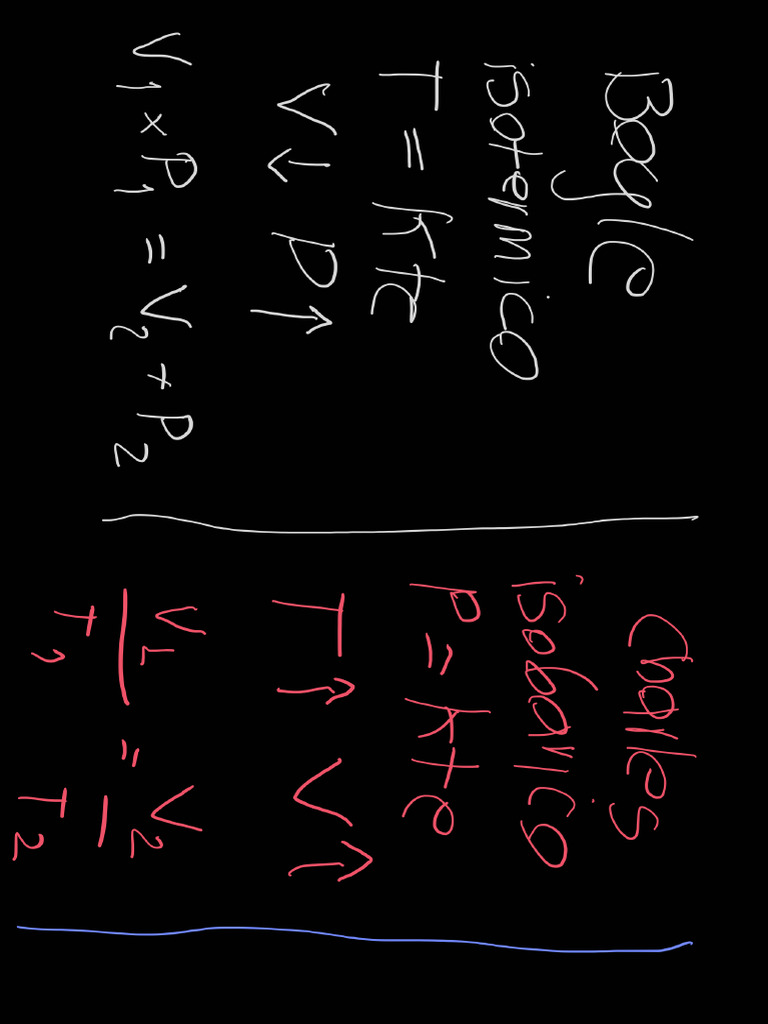 Boyle
isotermico
T = kte
V↓ P↑
V1 × P1 = V2 + P2
Charles
isobarico
P = kte
T↑ V↑
V1/T1 = V2/T2